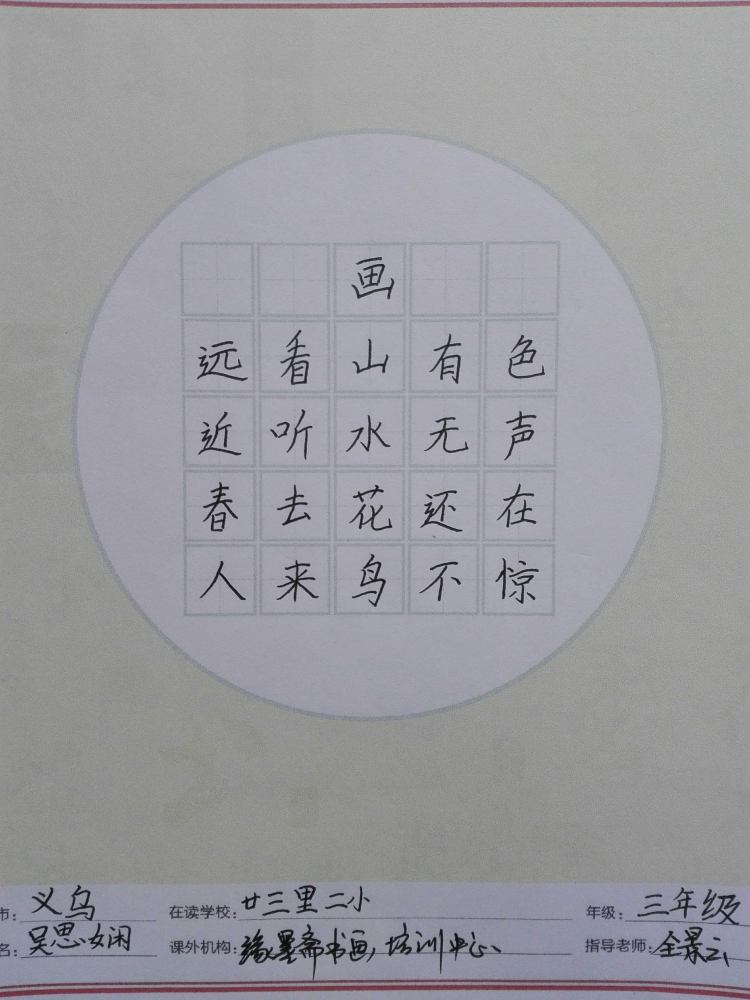 画
远看山有色
近听水无声
春去花还在
人来鸟不惊
市: 义乌 在读学校: 廿三里二小 年级: 三年级
名: 吴思娴 课外机构: 缘墨斋书画培训中心 指导老师: 全景云